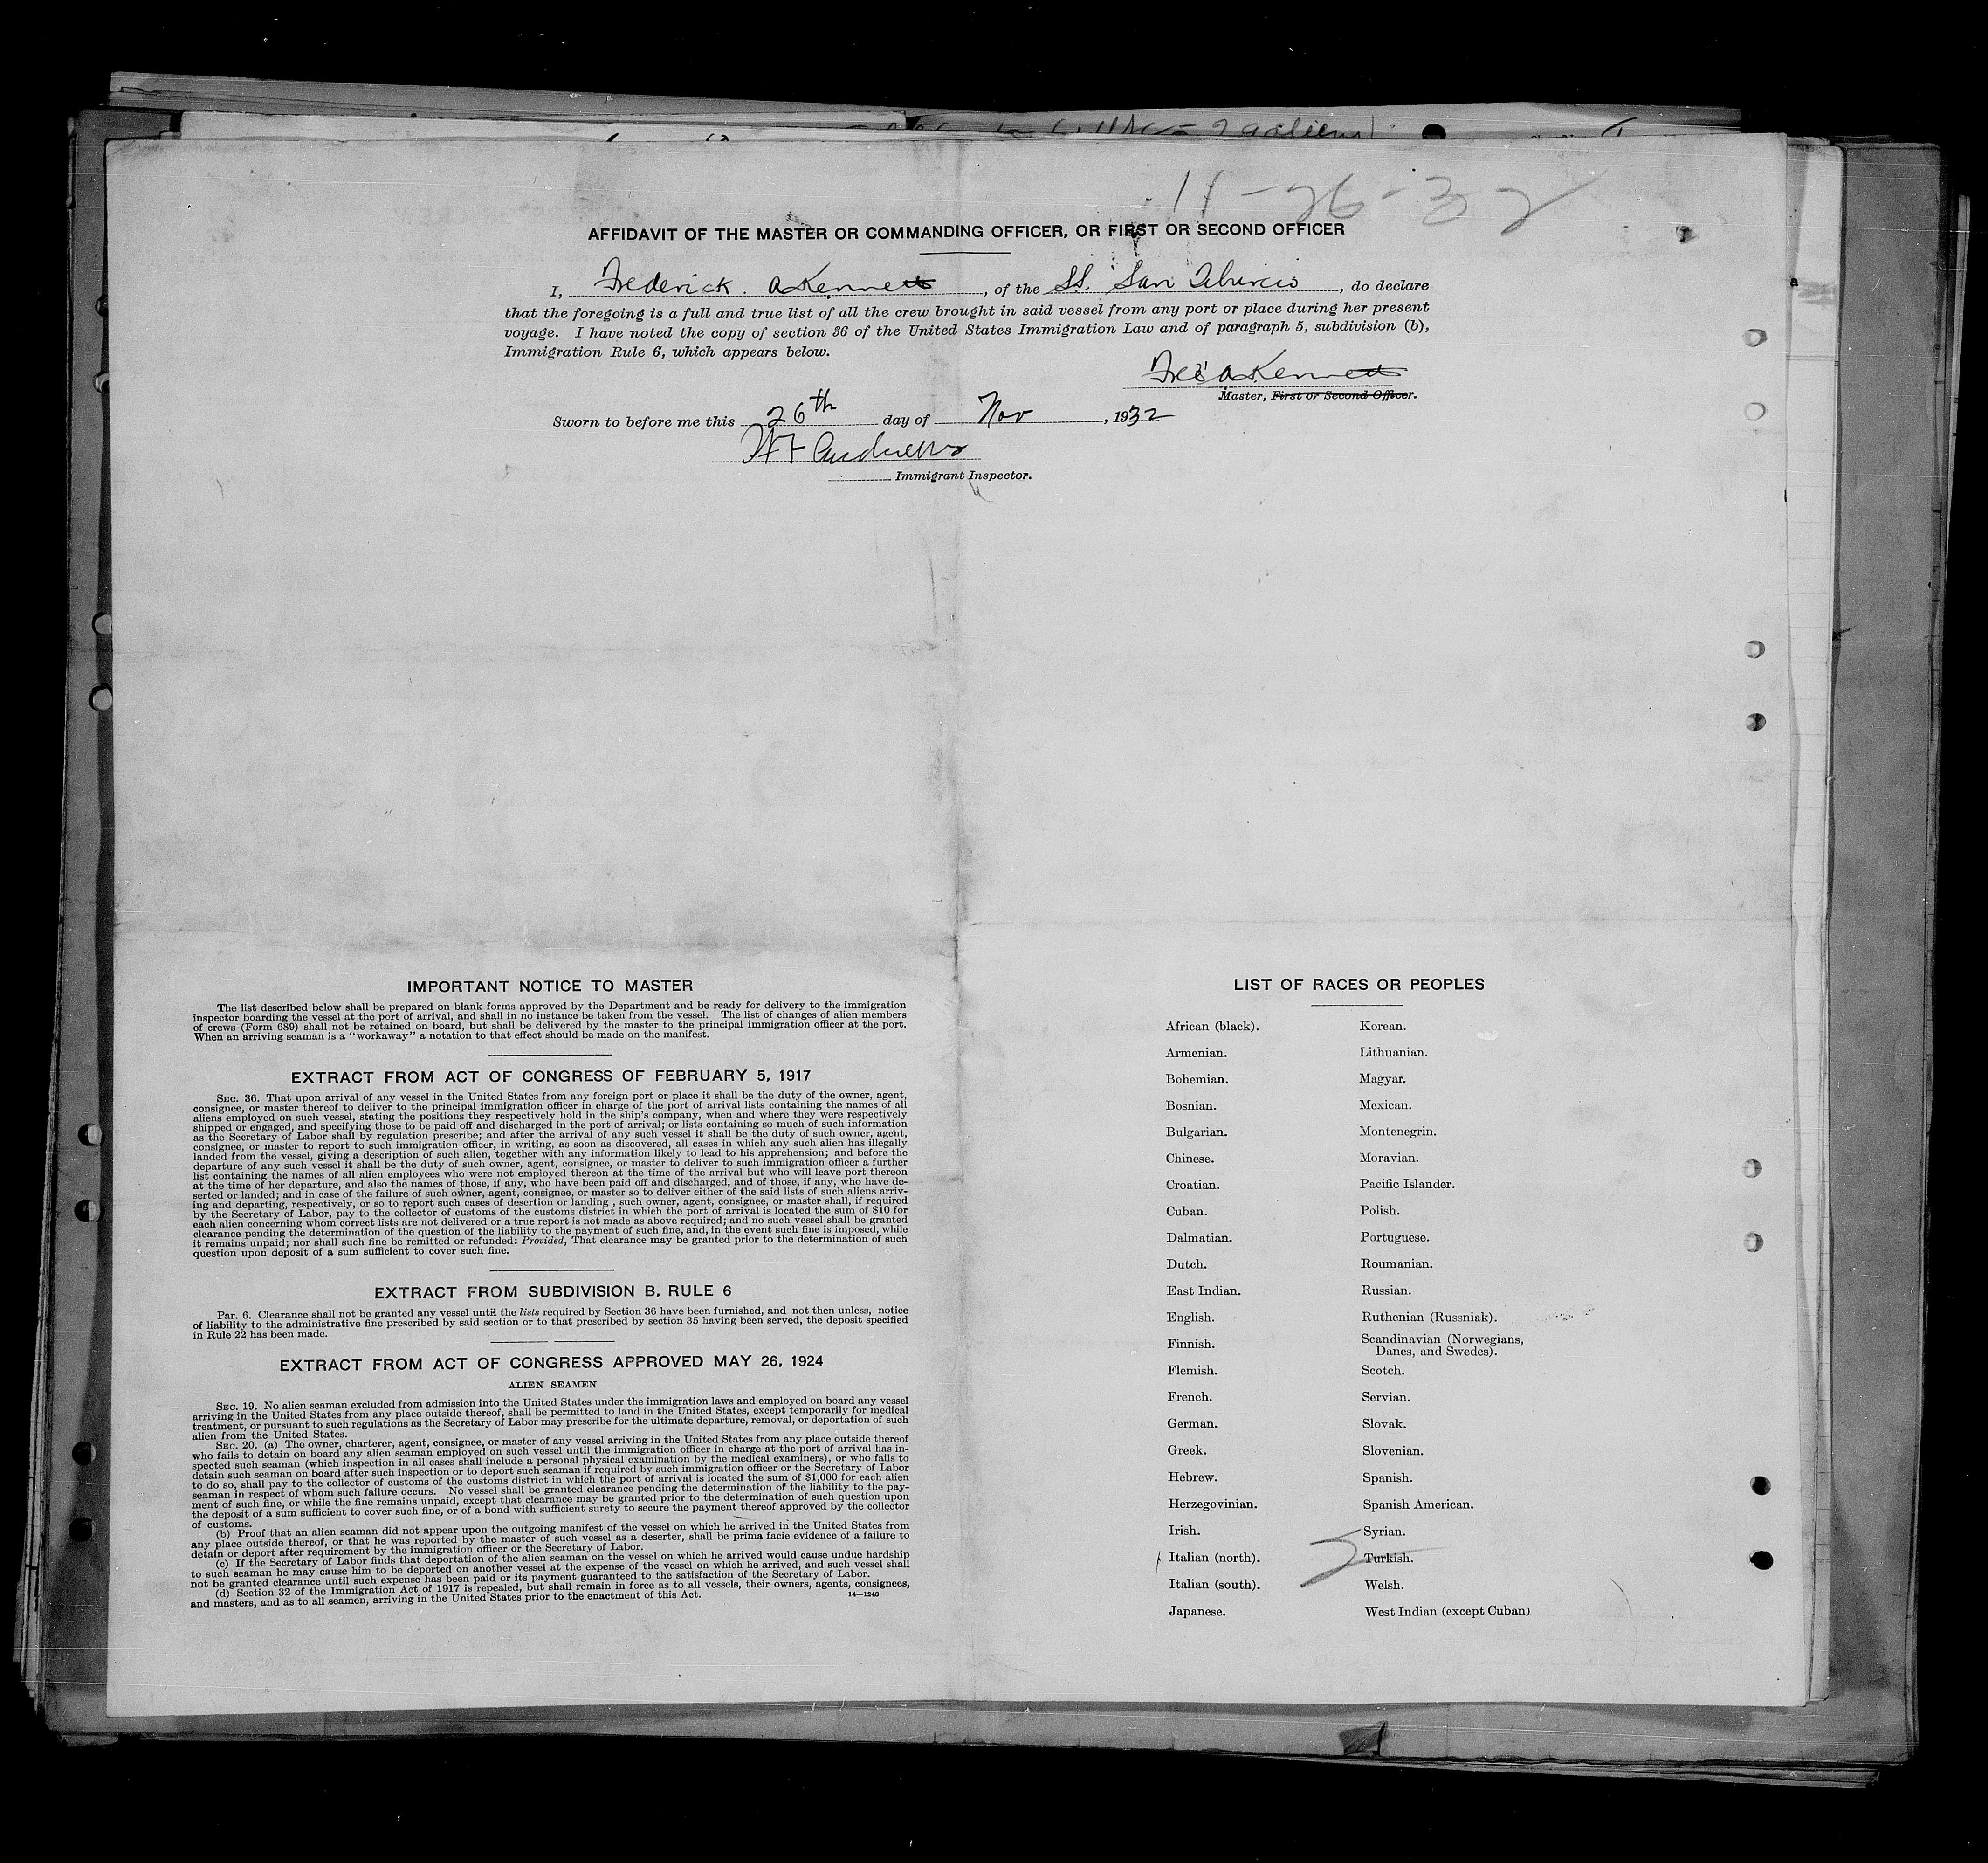 11-26-32
AFFIDAVIT OF THE MASTER OR COMMANDING OFFICER, OR FIRST OR SECOND OFFICER
I, Frederick. A Kennett, of the SS. San Tiburcio, do declare
that the foregoing is a full and true list of all the crew brought in said vessel from any port or place during her present
voyage. I have noted the copy of section 36 of the United States Immigration Law and of paragraph 5, subdivision (b),
Immigration Rule 6, which appears below.
Fred A Kennett
Master, First or Second Officer.
Sworn to before me this 26th day of Nov, 1932
Andrews
Immigrant Inspector.
IMPORTANT NOTICE TO MASTER
The list described below shall be prepared on blank forms approved by the Department and be ready for delivery to the immigration
inspector boarding the vessel at the port of arrival, and shall in no instance be taken from the vessel. The list of changes of alien members
of crews (Form 689) shall not be retained on board, but shall be delivered by the master to the principal immigration officer at the port.
When an arriving seaman is a "workaway" a notation to that effect should be made on the manifest.
EXTRACT FROM ACT OF CONGRESS OF FEBRUARY 5, 1917
SEC. 36. That upon arrival of any vessel in the United States from any foreign port or place it shall be the duty of the owner, agent,
consignee, or master thereof to deliver to the principal immigration officer in charge of the port of arrival lists containing the names of all
aliens employed on such vessel, stating the positions they respectively hold in the ship's company, when and where they were respectively
shipped or engaged, and specifying those to be paid off and discharged in the port of arrival; or lists containing so much of such information
as the Secretary of Labor shall by regulation prescribe; and after the arrival of any such vessel it shall be the duty of such owner, agent,
consignee, or master to report to such immigration officer, in writing, as soon as discovered, all cases in which any such alien has illegally
landed from the vessel, giving a description of such alien, together with any information likely to lead to his apprehension; and before the
departure of any such vessel it shall be the duty of such owner, agent, consignee, or master to deliver to such immigration officer a further
list containing the names of all alien employees who were not employed thereon at the time of the arrival but who will leave port thereon
at the time of her departure, and also the names of those, if any, who have been paid off and discharged, and of those, if any, who have de-
serted or landed; and in case of the failure of such owner, agent, consignee, or master so to deliver either of the said lists of such aliens arriv-
ing and departing, respectively, or so to report such cases of desertion or landing, such owner, agent, consignee, or master, shall, if required
by the Secretary of Labor, pay to the collector of customs of the customs district in which the port of arrival is located the sum of $10 for
each alien concerning whom correct lists are not delivered or a true report is not made as above required; and no such vessel shall be granted
clearance pending the determination of the question of the liability to the payment of such fine, and, in the event such fine is imposed, while
it remains unpaid; nor shall such fine be remitted or refunded: Provided, That clearance may be granted prior to the determination of such
question upon deposit of a sum sufficient to cover such fine.
EXTRACT FROM SUBDIVISION B, RULE 6
Par. 6. Clearance shall not be granted any vessel until the lists required by Section 36 have been furnished, and not then unless, notice
of liability to the administrative fine prescribed by said section or to that prescribed by section 35 having been served, the deposit specified
in Rule 22 has been made.
EXTRACT FROM ACT OF CONGRESS APPROVED MAY 26, 1924
ALIEN SEAMEN
SEC. 19. No alien seaman excluded from admission into the United States under the immigration laws and employed on board any vessel
arriving in the United States from any place outside thereof, shall be permitted to land in the United States, except temporarily for medical
treatment, or pursuant to such regulations as the Secretary of Labor may prescribe for the ultimate departure, removal, or deportation of such
alien from the United States.
SEC. 20. (a) The owner, charterer, agent, consignee, or master of any vessel arriving in the United States from any place outside thereof
who fails to detain on board any alien seaman employed on such vessel until the immigration officer in charge at the port of arrival has in-
spected such seaman (which inspection in all cases shall include a personal physical examination by the medical examiners), or who fails to
detain such seaman on board after such inspection or to deport such seaman if required by such immigration officer or the Secretary of Labor
to do so, shall pay to the collector of customs of the customs district in which the port of arrival is located the sum of $1,000 for each alien
seaman in respect of whom such failure occurs. No vessel shall be granted clearance pending the determination of the liability to the pay-
ment of such fine, or while the fine remains unpaid, except that clearance may be granted prior to the determination of such question upon
the deposit of a sum sufficient to cover such fine, or of a bond with sufficient surety to secure the payment thereof approved by the collector
of customs.
(b) Proof that an alien seaman did not appear upon the outgoing manifest of the vessel on which he arrived in the United States from
any place outside thereof, or that he was reported by the master of such vessel as a deserter, shall be prima facie evidence of a failure to
detain or deport after requirement by the immigration officer or the Secretary of Labor.
(c) If the Secretary of Labor finds that deportation of the alien seaman on the vessel on which he arrived would cause undue hardship
to such seaman he may cause him to be deported on another vessel at the expense of the vessel on which he arrived, and such vessel shall
not be granted clearance until such expense has been paid or its payment guaranteed to the satisfaction of the Secretary of Labor.
(d) Section 32 of the Immigration Act of 1917 is repealed, but shall remain in force as to all vessels, their owners, agents, consignees,
and masters, and as to all seamen, arriving in the United States prior to the enactment of this Act.
14—1240
LIST OF RACES OR PEOPLES
African (black).
Armenian.
Bohemian.
Bosnian.
Bulgarian.
Chinese.
Croatian.
Cuban.
Dalmatian.
Dutch.
East Indian.
English.
Finnish.
Flemish.
French.
German.
Greek.
Hebrew.
Herzegovinian.
Irish.
Italian (north).
Italian (south).
Japanese.
Korean.
Lithuanian.
Magyar.
Mexican.
Montenegrin.
Moravian.
Pacific Islander.
Polish.
Portuguese.
Roumanian.
Russian.
Ruthenian (Russniak).
Scandinavian (Norwegians,
Danes, and Swedes).
Scotch.
Servian.
Slovak.
Slovenian.
Spanish.
Spanish American.
Syrian.
Turkish.
Welsh.
West Indian (except Cuban)